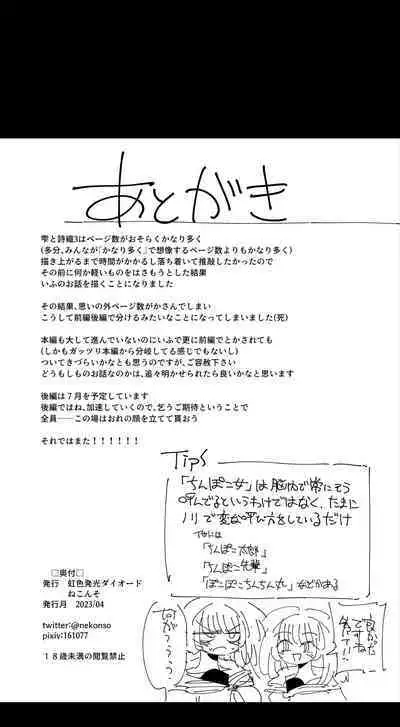 あとがき
雫と詩織3はページ数がおそらくかなり多く
(多分、みんなが「かなり多く」で想像するページ数よりもかなり多く)
描き上がるまで時間がかかるし落ち着いて推敲したかったので
その前に何か軽いものをはさもうとした結果
いふのお話を描くことになりました
その結果、思いの外ページ数がかさんでしまい
こうして前編後編で分けるみたいなことになってしまいました(死)
本編も大して進んでいないのにいふで更に前編でとかされても
(しかもガッツリ本編から分岐してる感じでもないし)
ついてきづらいかなとも思うのですが、ご容赦下さい
どうもしものお話なのかは、追々明かせられたら良いかなと思います
後編は7月を予定しています
後編ではね、加速していくので、乞うご期待ということで
全員――この場はおれの顔を立てて貰おう
それではまた！！！！！！
Tips
「ちんぽこ女」は脳内で常にそう
呼んでるというわけではなく、たまに
ノリで変な呼び方をしているだけ
他には
「ちんぽこ太郎」
「ちんぽこ先輩」
「ぽこぽこちんちん丸」などがある
□奥付□
発行　虹色発光ダイオード
ねこんそ
発行月　2023/04
twitter:@nekonso
pixiv:161077
１８歳未満の閲覧禁止
良かった
ですね
何がうぅぅ